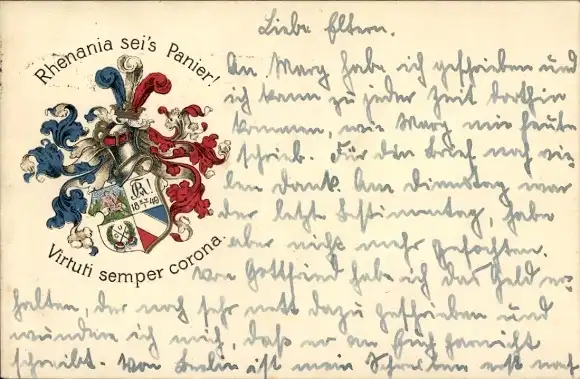 Rhenania sei's Panier!
18 27/1 49
Virtuti semper corona.
Liebe Eltern.
An Marg habe ich geschrieben und
ich kann zu jeder Zeit dorthin
kommen, wie Marg mir heute
schrieb. Für den Brief noch vie-
len Dank. Am Dienstag war
der letzte Bestimmtag, habe
aber nicht mehr gefochten.
Von Gottfried habe ich das Geld er-
halten, der noch sehr nett dazu geschrieben und
wundere ich mich, daß er an Euch garnicht
schreibt. Von Berlin ist mein Schreiben erst noch